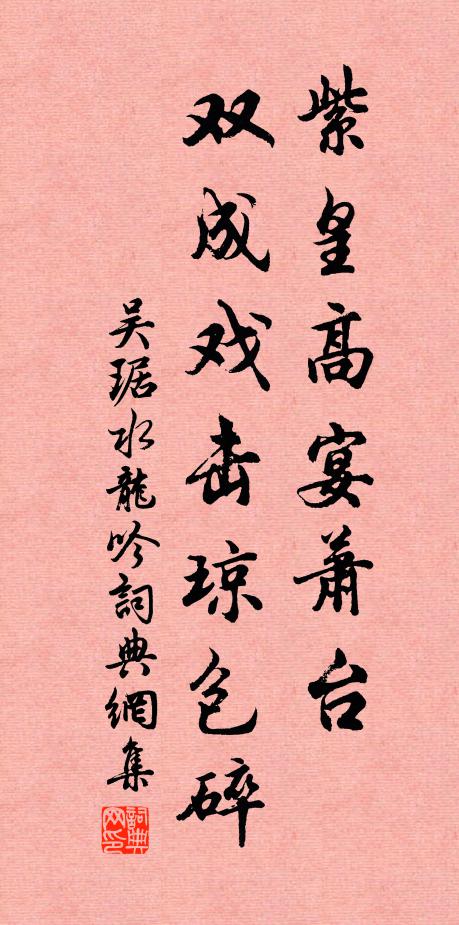 紫皇高宴萧台
双成戏击琼包碎
吴琚水龍吟詞典網集
詞典网印